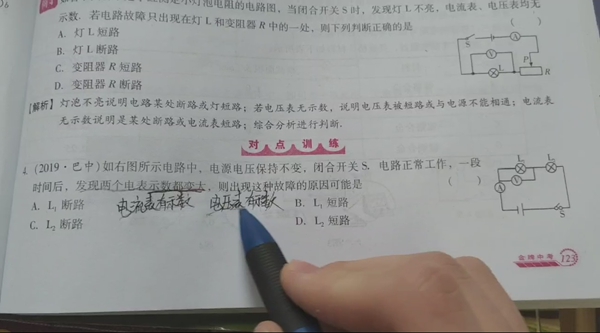 示数. 若电路故障只出现在灯 L 和变阻器 R 中的一处, 则下列判断正确的是 ( )
A. 灯 L 短路
B. 灯 L 断路
C. 变阻器 R 短路
D. 变阻器 R 断路
S
A
V
L
P
R
【解析】灯泡不亮说明电路某处断路或灯短路; 若电压表无示数, 说明电压表被短路或与电源不能相通; 电流表
无示数说明是某处断路或电流表短路; 综合分析进行判断.
对点训练
4. (2019·巴中) 如右图所示电路中, 电源电压保持不变, 闭合开关 S. 电路正常工作, 一段
时间后, 发现两个电表示数都变大, 则出现这种故障的原因可能是 ( )
A. L₁ 断路
B. L₁ 短路
电流表有示数 电压表有示数
C. L₂ 断路
D. L₂ 短路
A
V
S
金牌中考 123